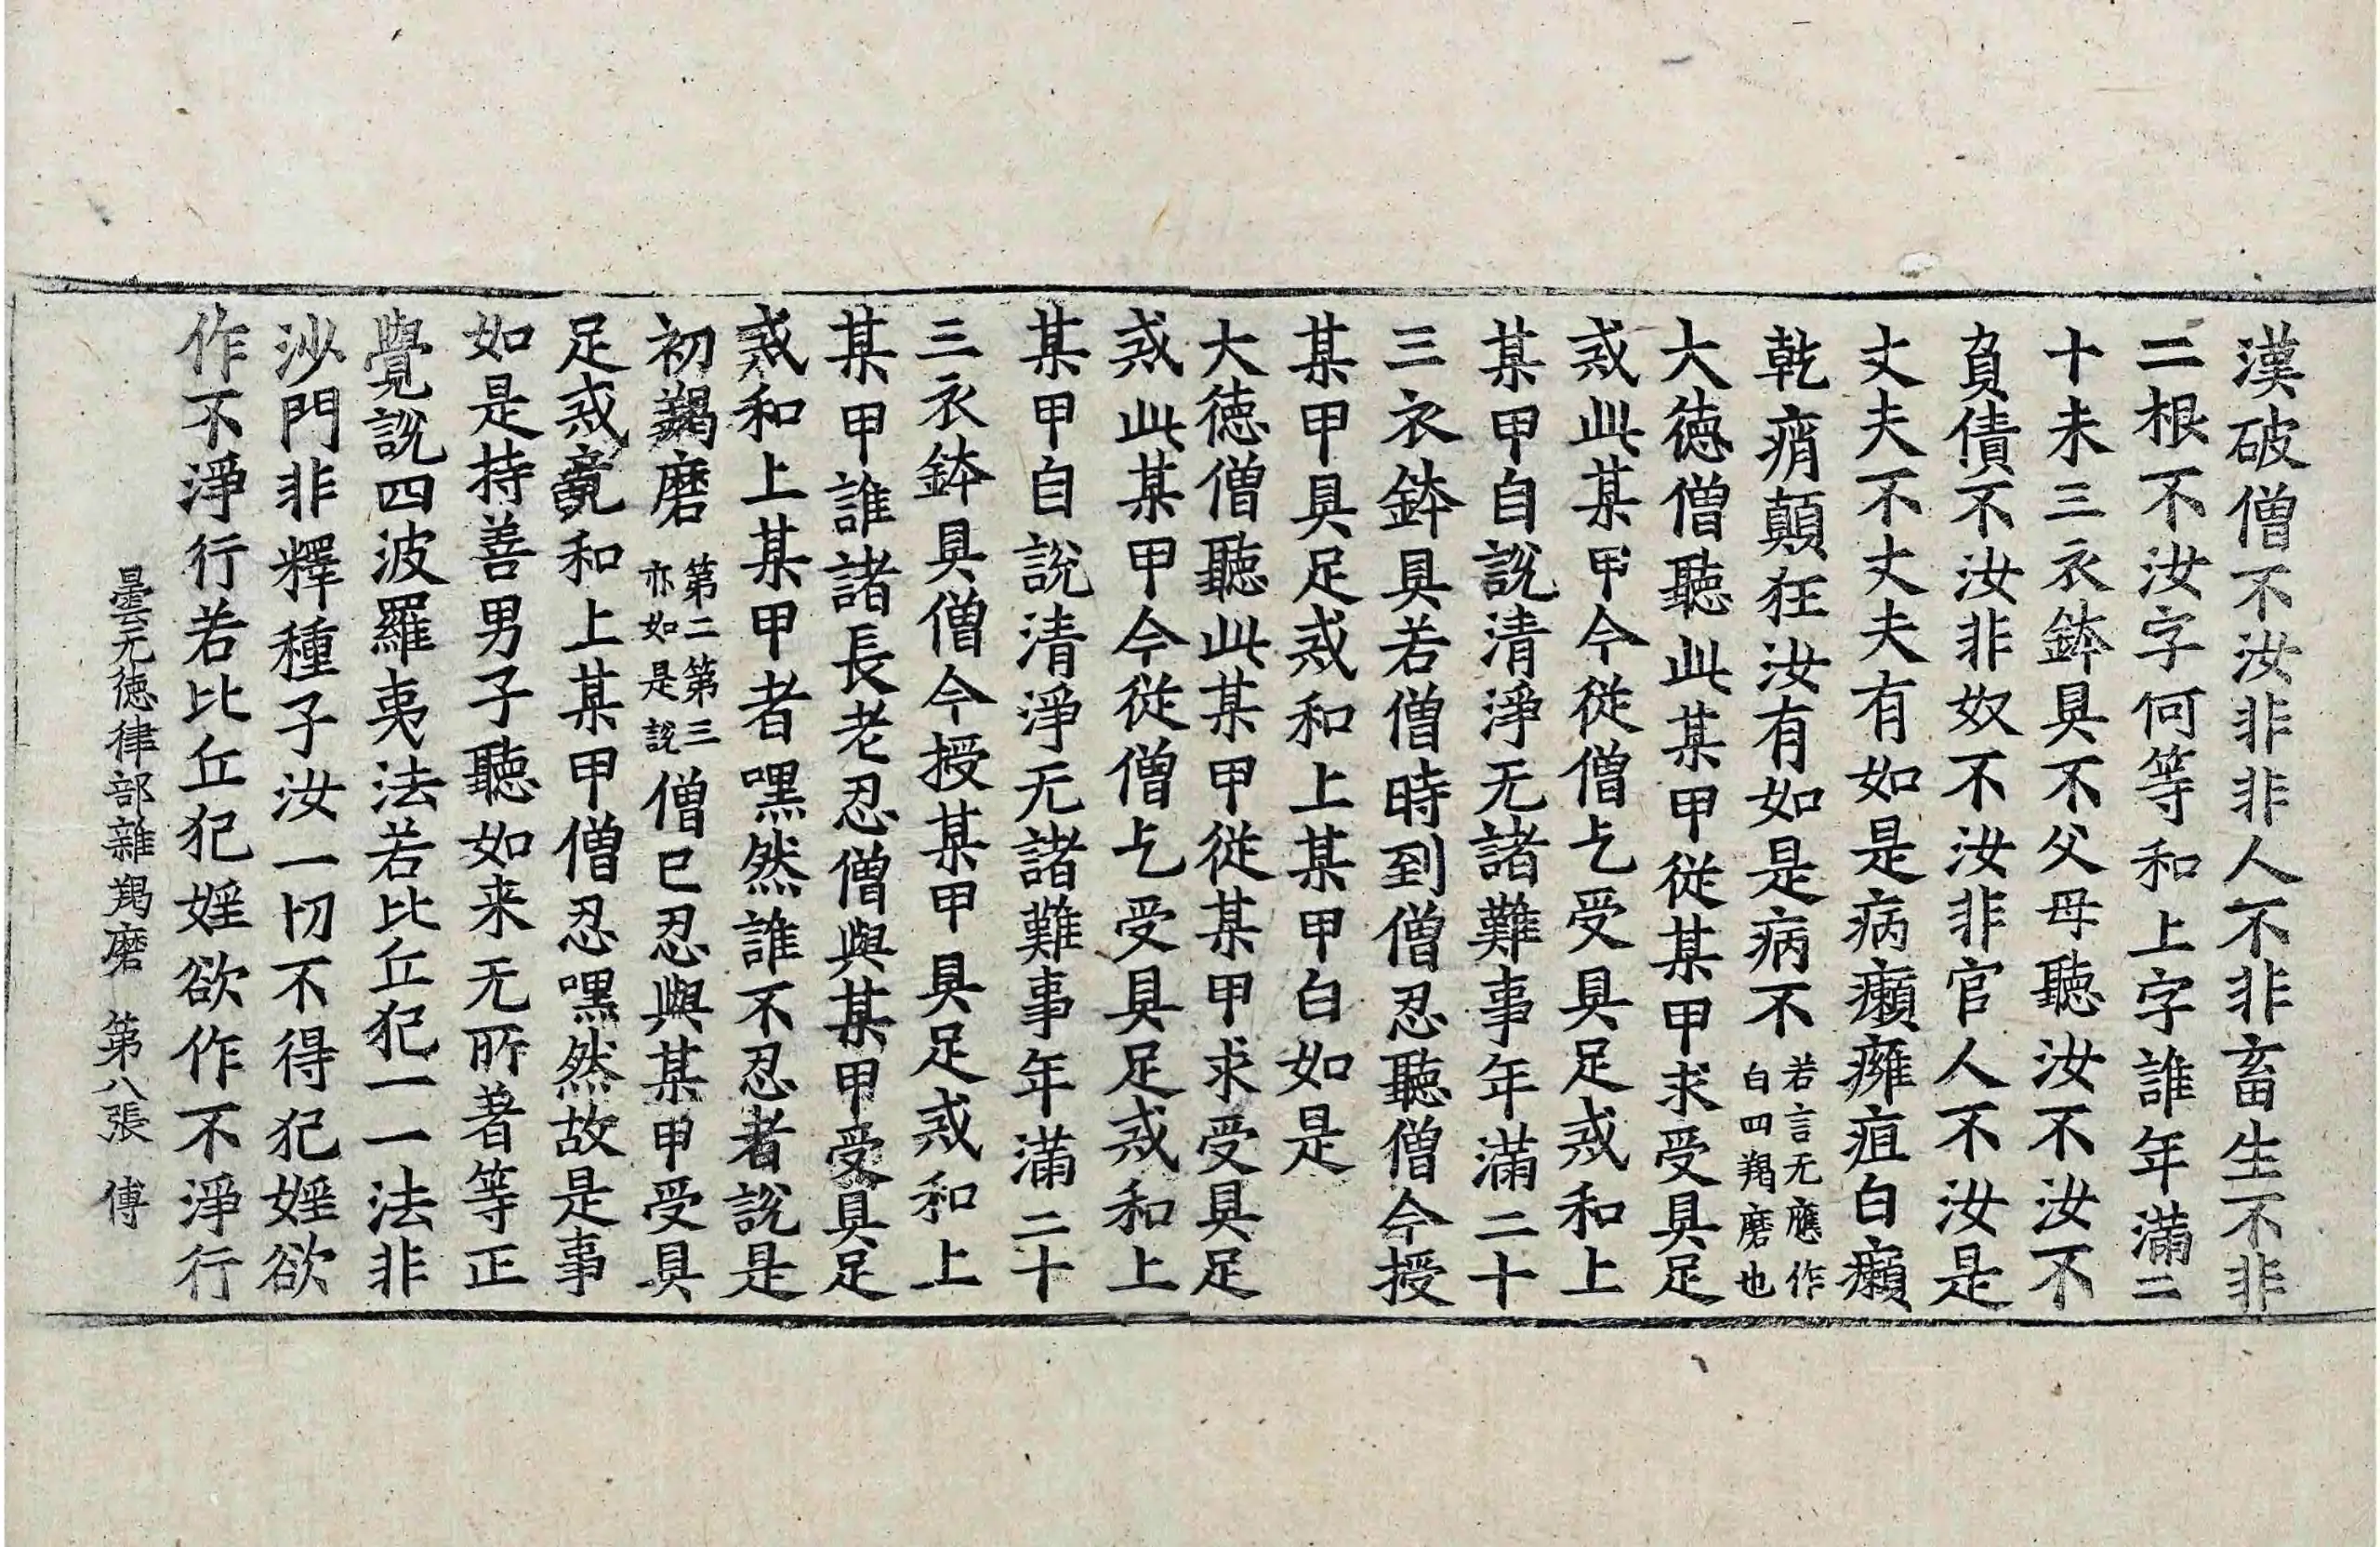 漢破僧不汝非非人不非畜生不非
二根不汝字何等和上字誰年滿二
十未三衣鉢具不父母聽汝不汝不
負債不汝非奴不汝非官人不汝是
丈夫不丈夫有如是病癩癰疽白癩
乾痟顛狂汝有如是病不若言无應作白四羯磨也
大徳僧聽此某甲従某甲求受具足
戒此某甲今従僧乞受具足戒和上
某甲自說清淨无諸難事年滿二十
三衣鉢具若僧時到僧忍聽僧今授
某甲具足戒和上某甲白如是
大徳僧聽此某甲従某甲求受具足
戒此某甲今従僧乞受具足戒和上
某甲自說清淨无諸難事年滿二十
三衣鉢具僧今授某甲具足戒和上
某甲誰諸長老忍僧與某甲受具足
戒和上某甲者嘿然誰不忍者說是
初羯磨第二第三亦如是說僧已忍與某甲受具
足戒竟和上某甲僧忍嘿然故是事
如是持善男子聽如来无所著等正
覺說四波羅夷法若比丘犯一一法非
沙門非釋種子汝一切不得犯婬欲
作不淨行若比丘犯婬欲作不淨行
曇无徳律部雜羯磨 第八張 傅